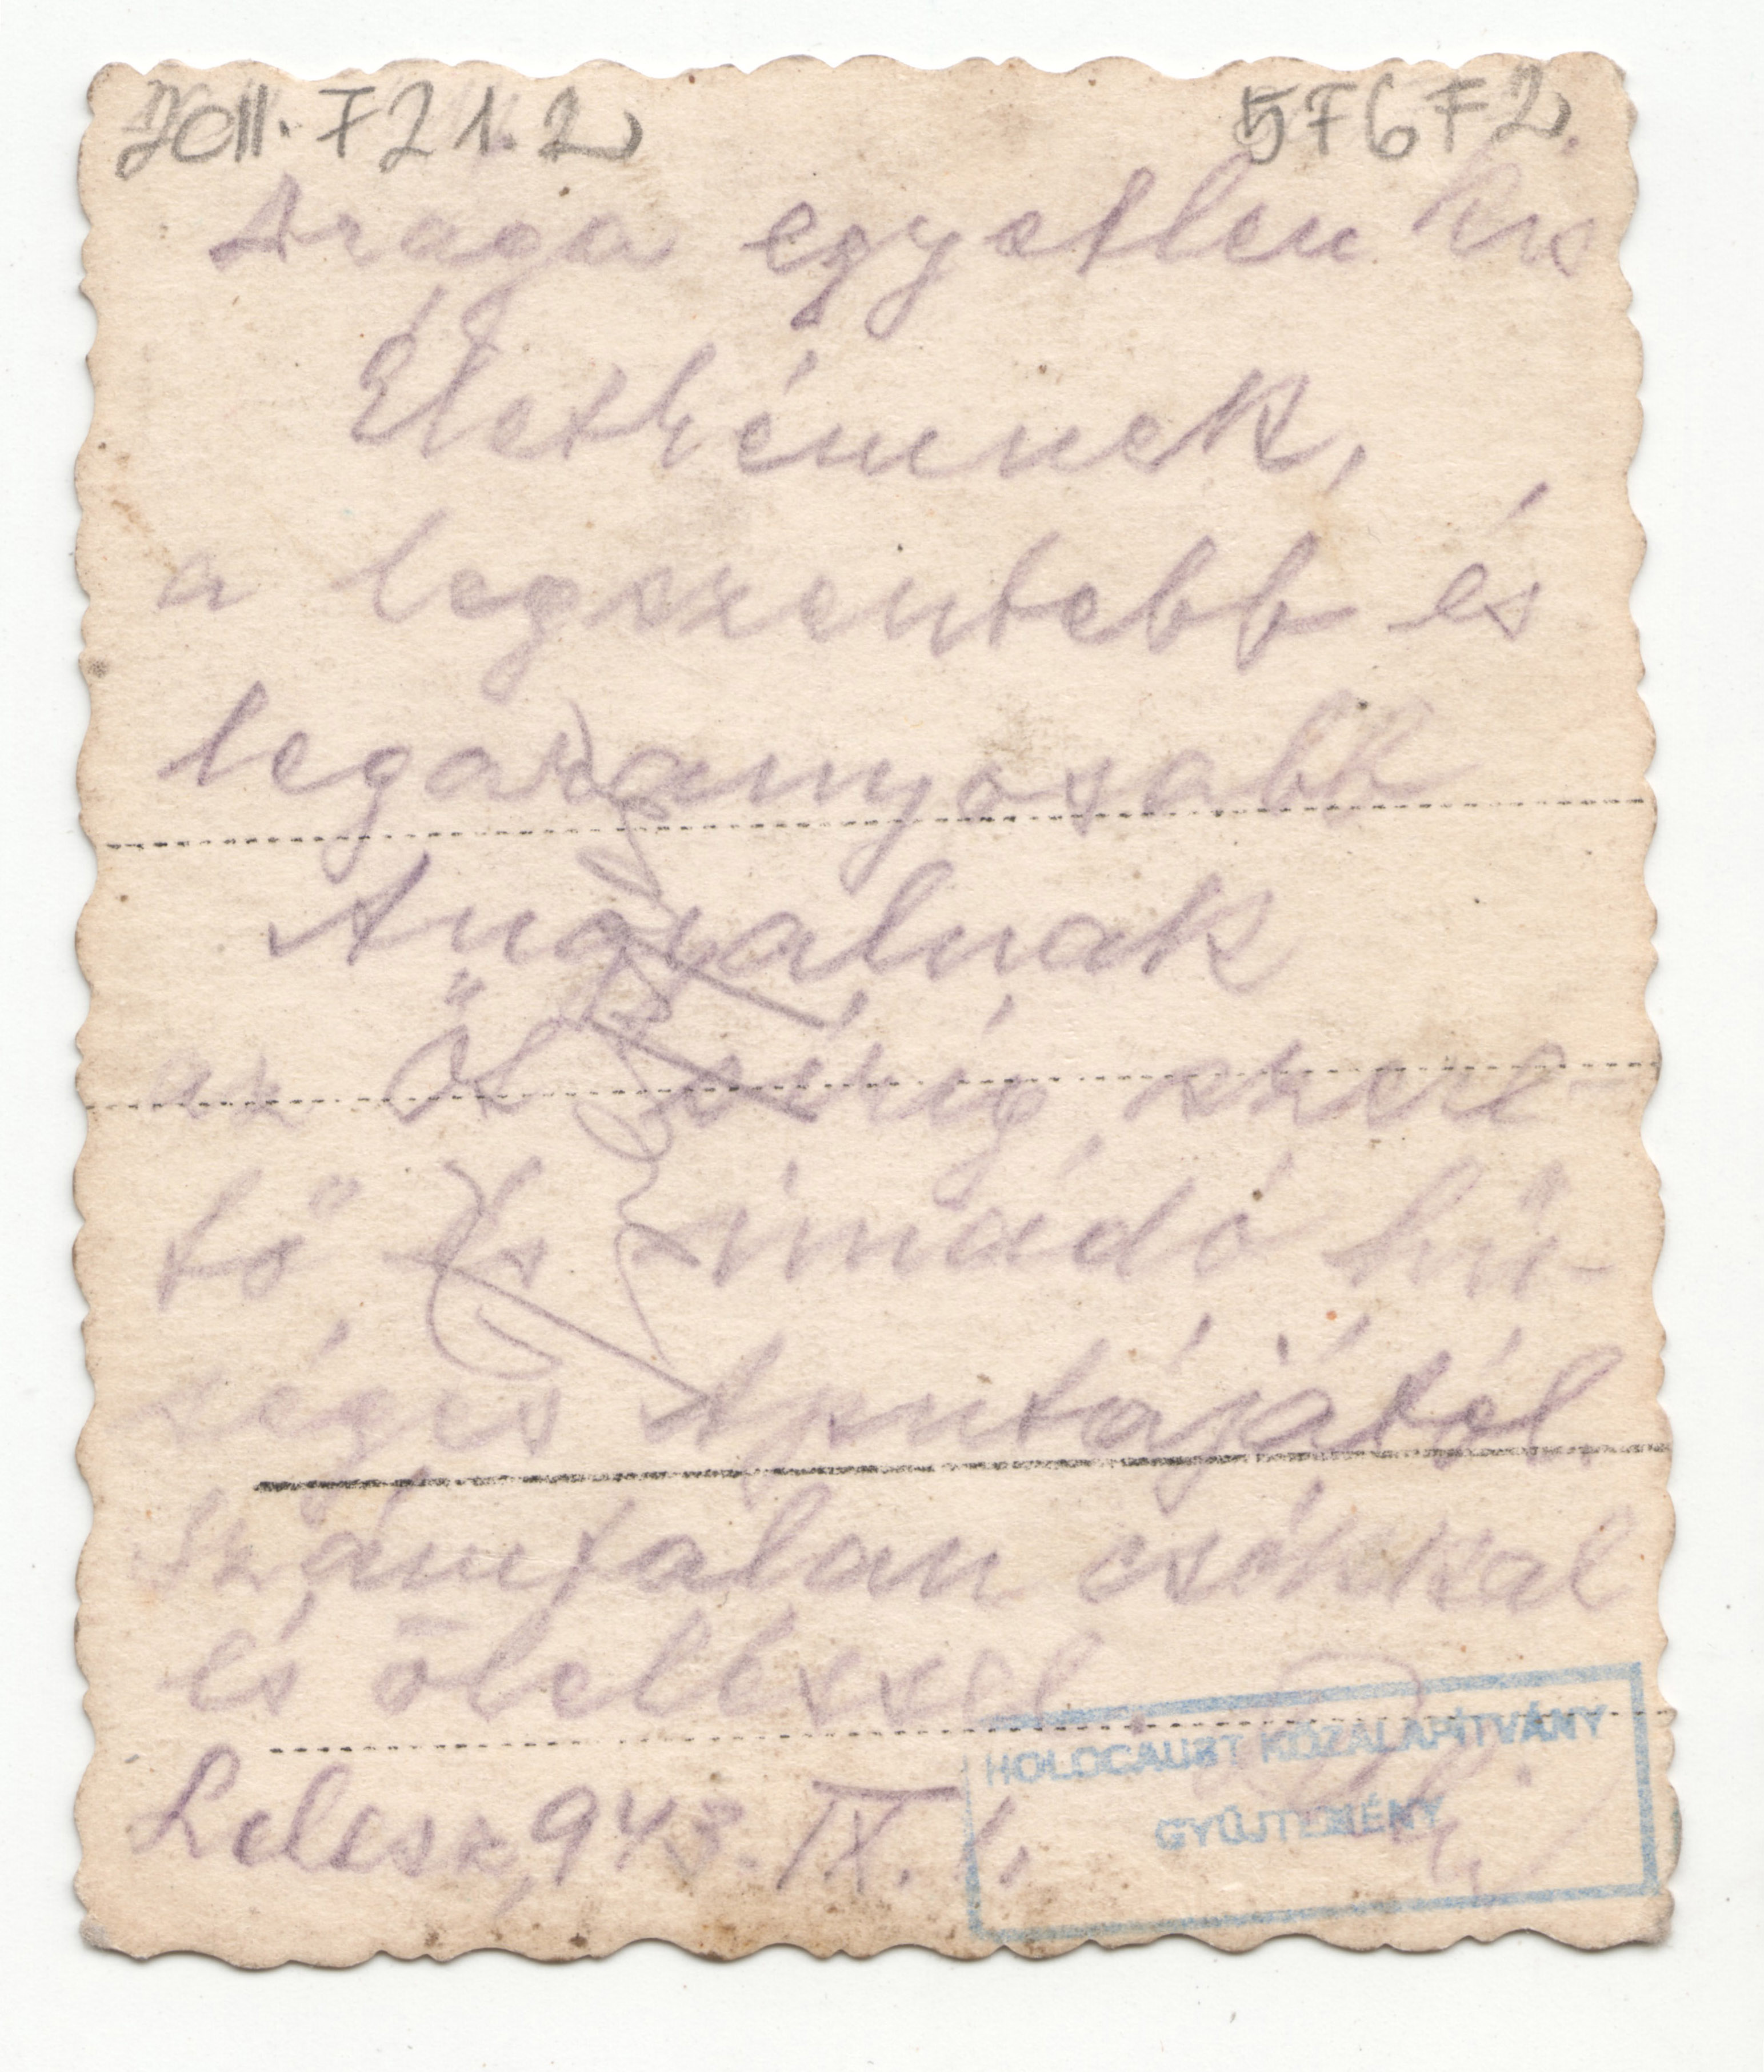 2011.721.2 57672.
Drága egyetlen kis
Életkémnek,
a legszentebb és
legaranyosabb
Angyalnak
az Őt sírig szere
tő és imádó hű-
séges Apukájától.
Számtalan csókkal
és öleléssel.
HOLOCAUST KÖZALAPÍTVÁNY
GYŰJTEMÉNY
Lelesz, 943. IX. 1.